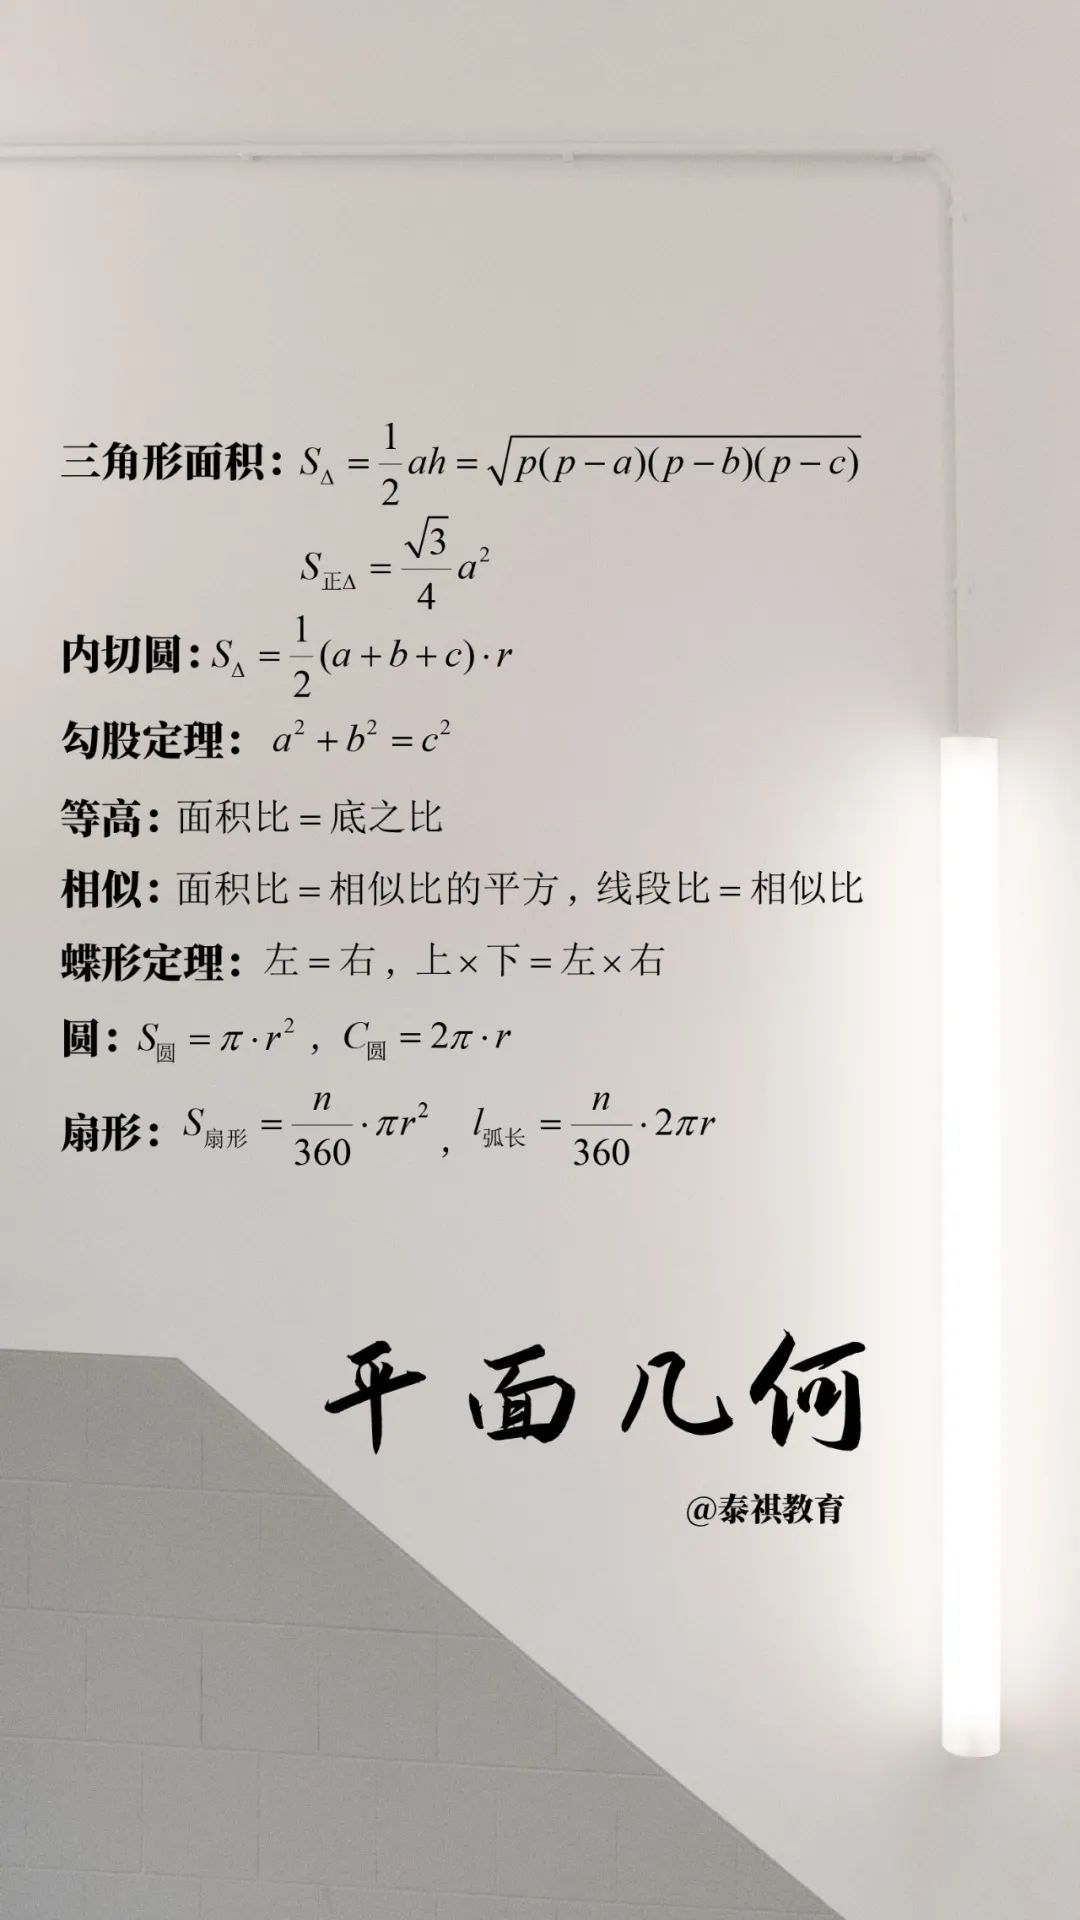 三角形面积：S_Δ = 1/2 ah = √(p(p−a)(p−b)(p−c))
S_正Δ = √3/4 a²
内切圆：S_Δ = 1/2 (a+b+c)·r
勾股定理： a² + b² = c²
等高：面积比 = 底之比
相似：面积比 = 相似比的平方，线段比 = 相似比
蝶形定理：左 = 右，上 × 下 = 左 × 右
圆：S_圆 = π·r²，C_圆 = 2π·r
扇形：S_扇形 = n/360 · πr²，l_弧长 = n/360 · 2πr
平面几何
@泰祺教育